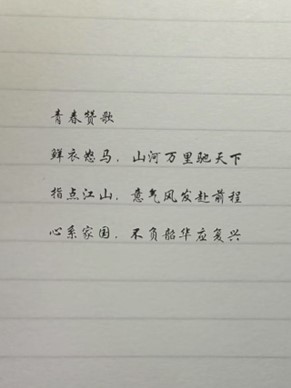 青春赞歌
鲜衣怒马，山河万里驰天下
指点江山，意气风发赴前程
心系家国，不负韶华应复兴